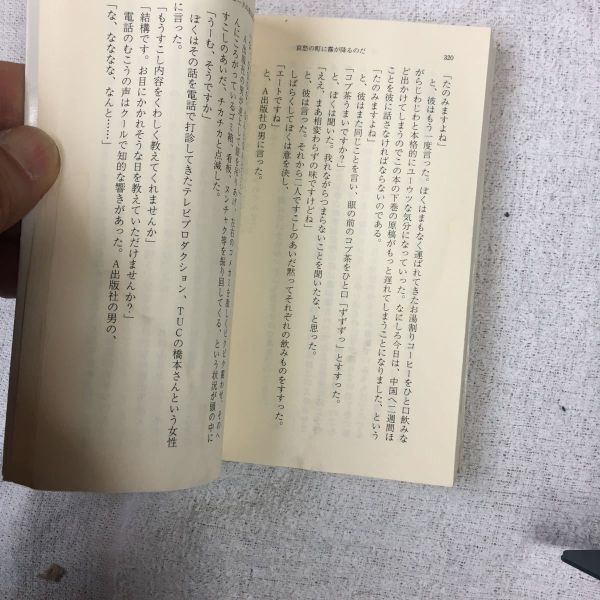 320
哀愁の町に霧が降るのだ
「たのみますよね」
と、彼はもう一度言った。ぼくはまもなく運ばれてきたお湯割りコーヒーをひと口飲みな
がらじわじわと本格的にユーウツな気分になっていった。なにしろ今日は、中国へ二週間ほ
ど出かけてしまうのでこの本の下巻の原稿がもっと遅れてしまうことになりました、という
ことを彼に話さなければならないのである。
「たのみますよね」
と、彼はまた同じことを言い、眼の前のコブ茶をひと口「ずずずっ」とすすった。
「コブ茶うまいですか?」
と、ぼくは聞いた。我れながらつまらないことを聞いたな、と思った。
「ええ、まあ相変わらずの味ですけどね」
と、彼は言った。それから二人ですこしのあいだ黙ってそれぞれの飲みものをすすった。
しばらくしてぼくは意を決し、
「エートですね」
と、A出版社の男に言った。
んにころがっているゴミ箱、看板、ヌンチャク等を振り回してくる、という状況が頭の中に
すこしのあいだ、チカチカと点滅した。
「うーむ、そうですか」
ぼくはその話を電話で打診してきたテレビプロダクション、TUCの橋本さんという女性
に言った。
「もうすこし内容をくわしく教えてくれませんか」
「結構です。お目にかかれそうな日を教えていただけませんか?」
電話のむこうの声はクールで知的な響きがあった。A出版社の男の、
「な、なななな、なんと……」